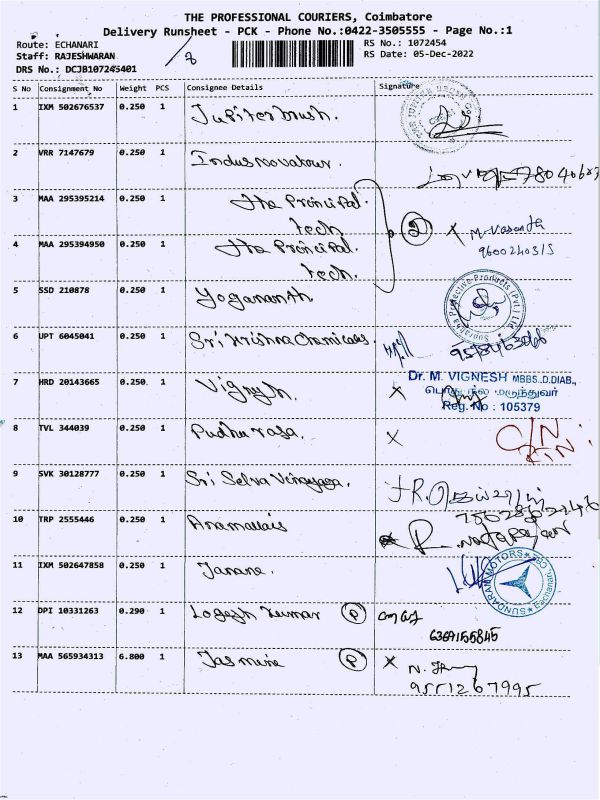 THE PROFESSIONAL COURIERS, Coimbatore
Delivery Runsheet - PCK - Phone No.:0422-3505555 - Page No.:1
Route: ECHANARI
RS No.: 1072454
Staff: RAJESHWARAN
RS Date: 05-Dec-2022
DRS No.: DCJB107245401
S No Consignment No Weight PCS Consignee Details Signature
1 IXM 502676537 0.250 1 Jupiter brush.
2 VRR 7147679 0.250 1 Indus novateur.
3 MAA 295395214 0.250 1 the Principal. tech
4 MAA 295394950 0.250 1 the Principal. tech.
② X M. Vasantha
9600240315
5 SSD 210878 0.250 1 Yogananth
Suraksha Protective Products (Pvt.) Ltd
6 UPT 6045041 0.250 1 Sri Krishna Chemicals.
7 HRD 20143665 0.250 1 Vignesh. X
Dr. M. VIGNESH MBBS.,D.DIAB.,
பொது நல மருத்துவர்
Reg. No : 105379
8 TVL 344039 0.250 1 Pudhu rasa. X C/N
9 SVK 30128777 0.250 1 Sri Selva Vinayaga.
10 TRP 2555446 0.250 1 Anamallais
11 IXM 502647858 0.250 1 Janane.
SUNDARAM MOTORS Eachanari CBE
12 DPI 10331263 0.290 1 Logesh Kumar Ⓟ
6369155845
13 MAA 565934313 6.800 1 Jasmine Ⓟ X
9551267995